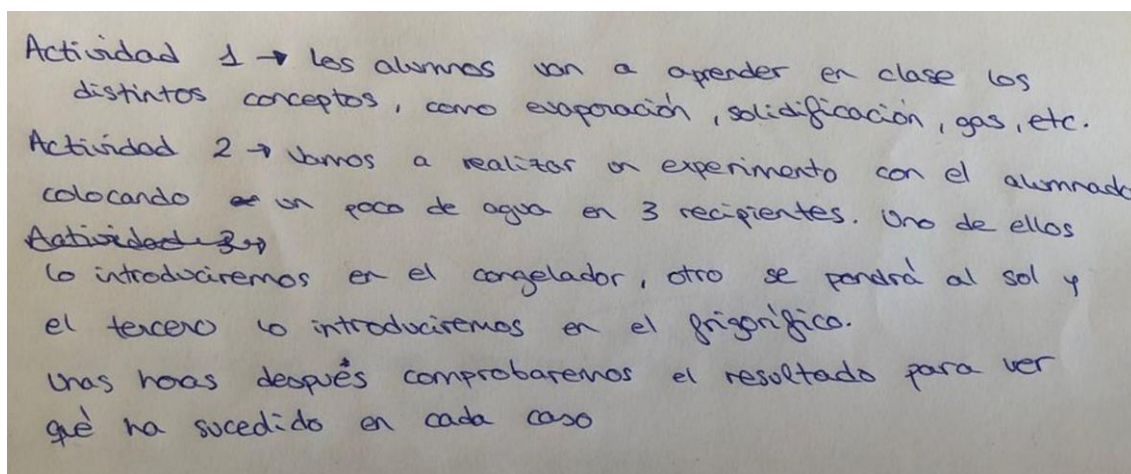 Actividad 1 → los alumnos van a aprender en clase los
distintos conceptos, como evaporación, solidificación, gas, etc.
Actividad 2 → Vamos a realizar un experimento con el alumnado
colocando un poco de agua en 3 recipientes. Uno de ellos
Actividad 3 →
lo introduciremos en el congelador, otro se pondrá al sol y
el tercero lo introduciremos en el frigorífico.
Unas horas después comprobaremos el resultado para ver
qué ha sucedido en cada caso